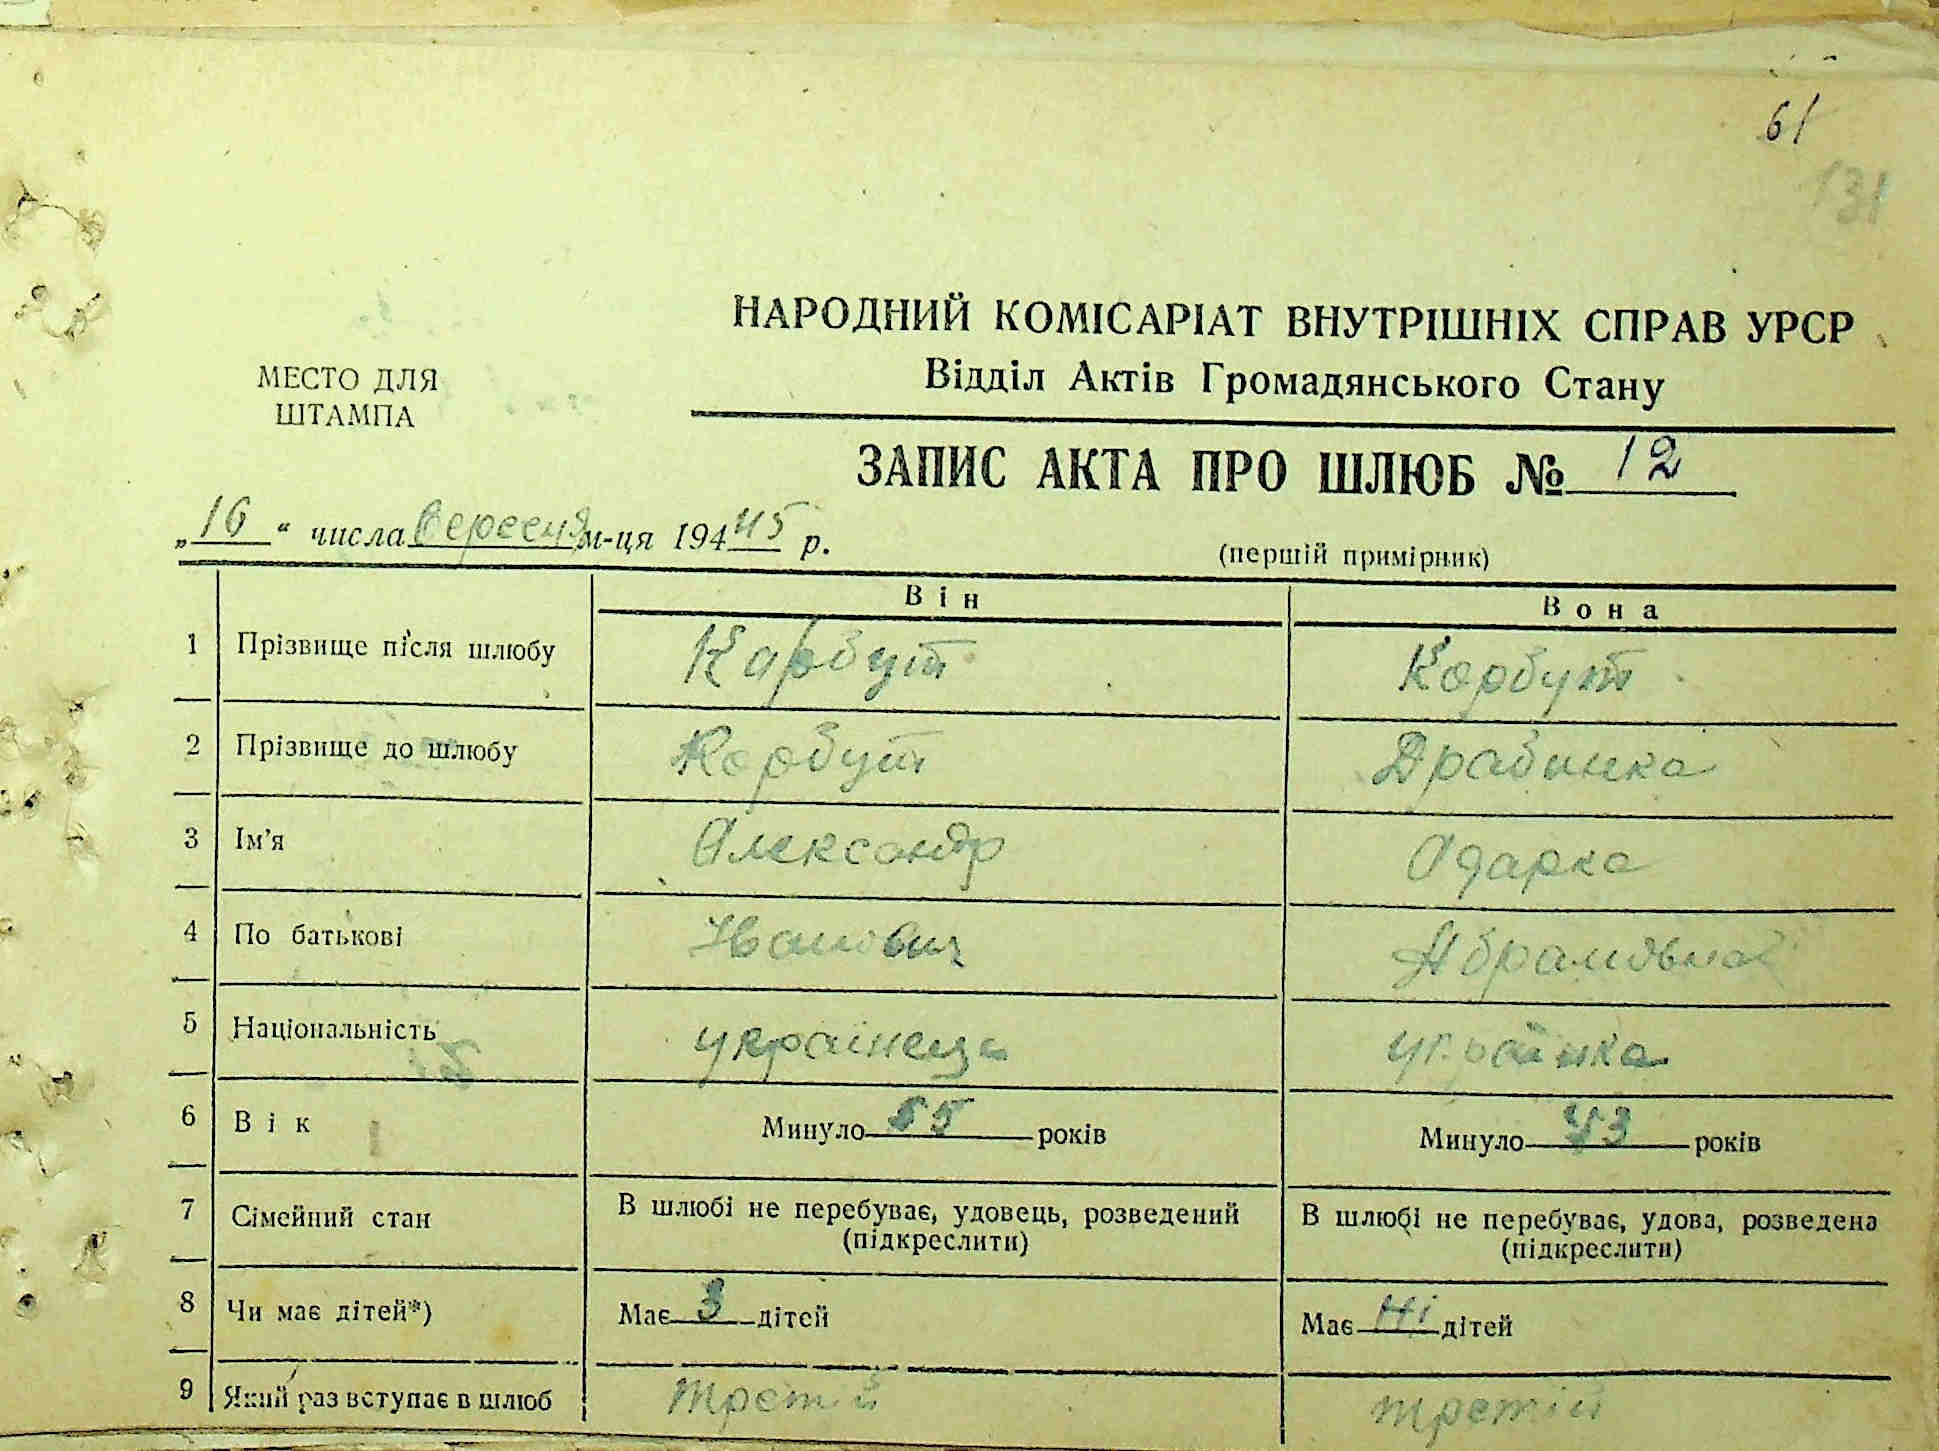 61
131
НАРОДНИЙ КОМІСАРІАТ ВНУТРІШНІХ СПРАВ УРСР
Відділ Актів Громадянського Стану
МЕСТО ДЛЯ
ШТАМПА
ЗАПИС АКТА ПРО ШЛЮБ № 12
„16“ числа Вересня м-ця 194 45 р.
(першій примірник)
Він
Вона
1 Прізвище після шлюбу Карбут Корбут
2 Прізвище до шлюбу Корбут Драбинка
3 Ім’я Олександр Одарка
4 По батькові Иванович Абрамовна
5 Національність українець українка
6 Вік Минуло 55 років Минуло 43 років
7 Сімейний стан В шлюбі не перебуває, удовець, розведений (підкреслити) В шлюбі не перебуває, удова, розведена (підкреслити)
8 Чи має дітей*) Має 3 дітей Має Ні дітей
9 Який раз вступає в шлюб третій третій